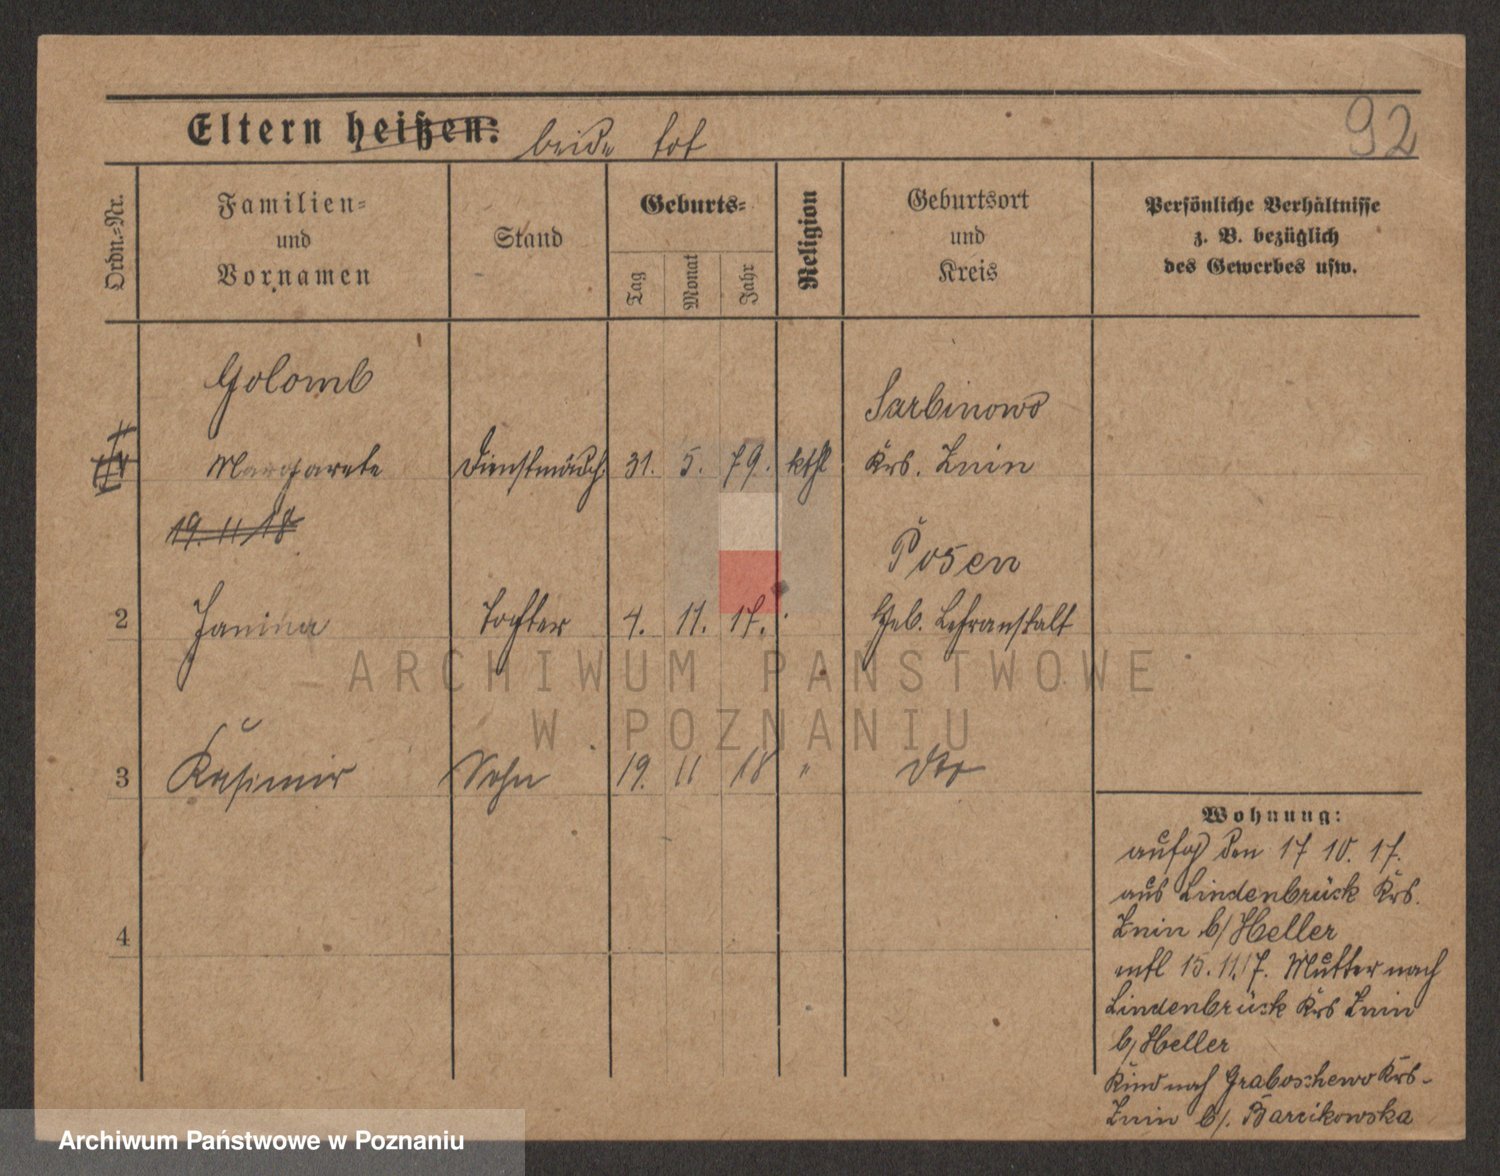 92
Eltern heißen: beide tot
Ordn.-Nr.
Familien-
und
Vornamen
Stand
Geburts-
Tag
Monat
Jahr
Religion
Geburtsort
und
Kreis
Persönliche Verhältnisse
z. B. bezüglich
des Gewerbes usw.
Golomb
Margarete
Dienstmädch.
31. 5. 79. kthl
Sarbinowo
Krs. Znin
19. 11 18
2
Janina
Tochter
4. 11. 17.
Posen
Geb. Lehranstalt
3
Kasimir
Sohn
19. 11 18 "
dto
4
Wohnung:
den 17 10. 17.
aus Lindenbrück Krs.
Znin b/ Heller
entl 15. 11. 17. Mutter nach
Lindenbrück Krs Znin
b/ Heller
Kind nach Graboschewo Krs.
Znin b/. Barcikowska
ARCHIWUM PAŃSTWOWE
W POZNANIU
Archiwum Państwowe w Poznaniu